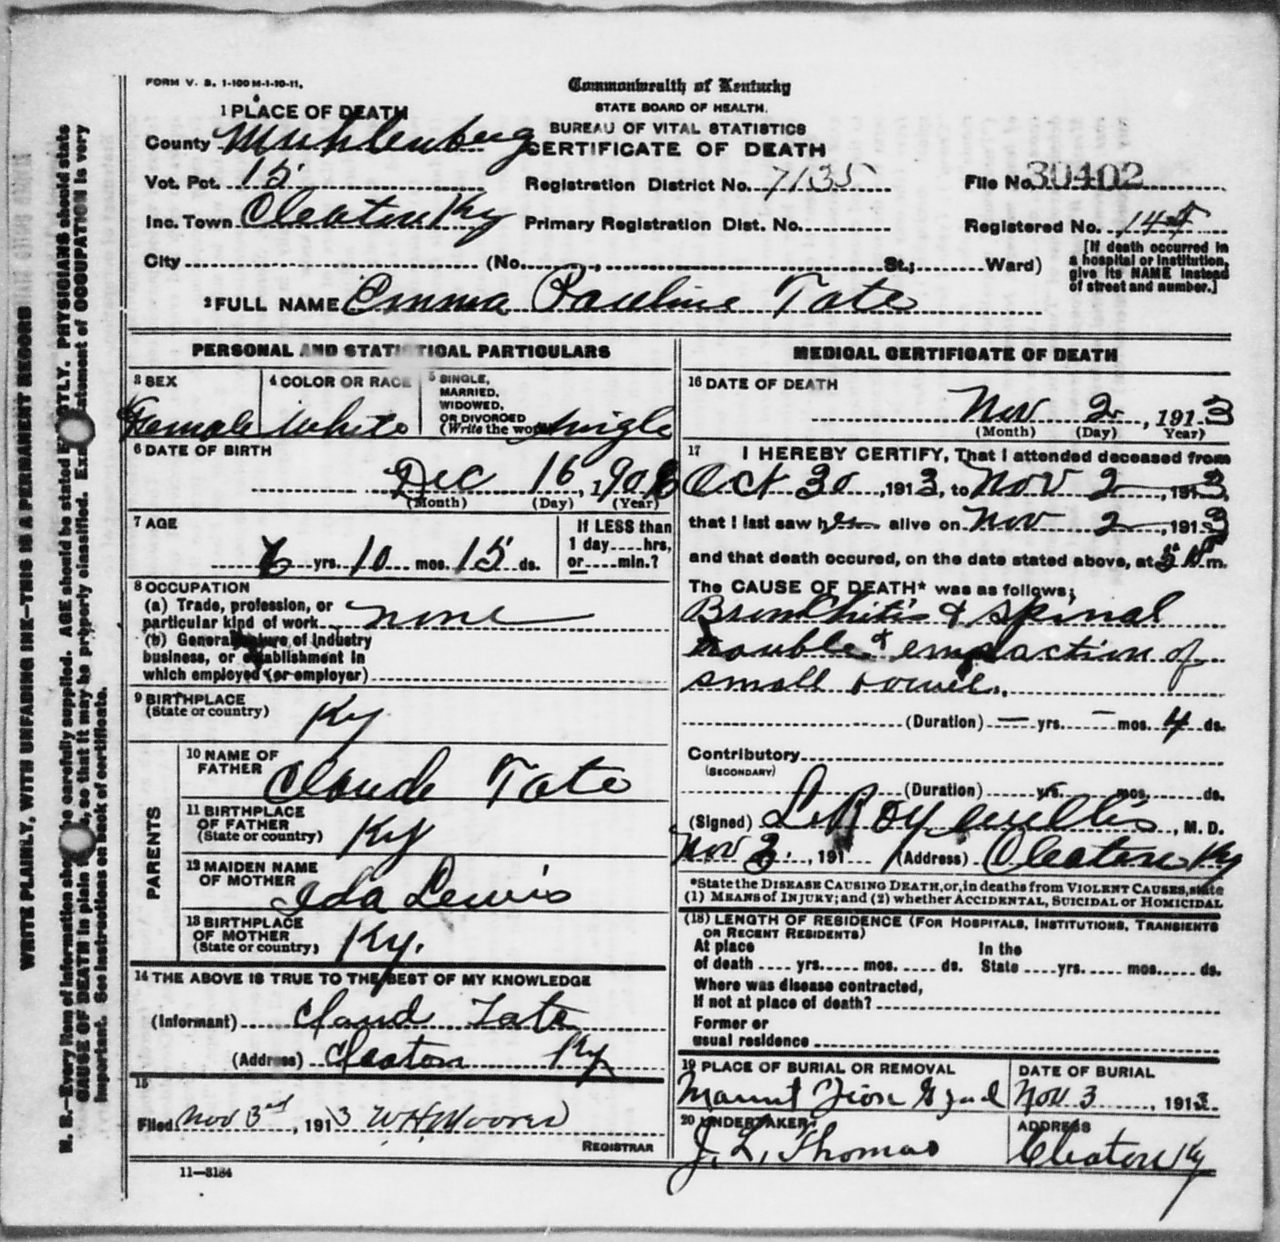 FORM V. S. 1-100 M-1-10-11.
Commonwealth of Kentucky
STATE BOARD OF HEALTH.
BUREAU OF VITAL STATISTICS
CERTIFICATE OF DEATH
1 PLACE OF DEATH
County Muhlenberg
Vot. Pct. 15 Registration District No. 7135 File No. 30402
Inc. Town Cleaton Ky Primary Registration Dist. No. Registered No. 144
City (No. , St.; Ward)
[If death occurred in
a hospital or institution,
give its NAME instead
of street and number.]
2 FULL NAME Emma Pauline Tate
PERSONAL AND STATISTICAL PARTICULARS
3 SEX
Female
4 COLOR OR RACE
White
5 SINGLE,
MARRIED,
WIDOWED,
OR DIVORCED
(Write the word) single
6 DATE OF BIRTH
Dec 16, 1906
(Month) (Day) (Year)
7 AGE
6 yrs. 10 mos. 15 ds.
If LESS than
1 day....hrs.
or.....min.?
8 OCCUPATION
(a) Trade, profession, or
particular kind of work none
(b) General nature of industry
business, or establishment in
which employed (or employer)
9 BIRTHPLACE
(State or country) Ky
PARENTS
10 NAME OF
FATHER Claude Tate
11 BIRTHPLACE
OF FATHER
(State or country) Ky
12 MAIDEN NAME
OF MOTHER Ida Lewis
13 BIRTHPLACE
OF MOTHER
(State or country) Ky.
14 THE ABOVE IS TRUE TO THE BEST OF MY KNOWLEDGE
(Informant) Claud Tate
(Address) Cleaton Ky
15
Filed Nov 3rd, 1913 W H Moores
REGISTRAR
11-3184
MEDICAL CERTIFICATE OF DEATH
16 DATE OF DEATH
Nov 2, 1913
(Month) (Day) Year)
17 I HEREBY CERTIFY, That I attended deceased from
Oct 30, 1913, to Nov 2, 1913
that I last saw her alive on Nov 2, 1913
and that death occured, on the date stated above, at 5 P m.
The CAUSE OF DEATH* was as follows;
Bronchitis & spinal
trouble & empaction of
small bowels.
(Duration) — yrs. — mos. 4 ds.
Contributory
(SECONDARY)
(Duration) yrs. mos. ds.
(Signed) LeRoy Willis, M. D.
Nov 3, 191 (Address) Cleaton Ky
*State the DISEASE CAUSING DEATH, or, in deaths from VIOLENT CAUSES, state
(1) MEANS of INJURY; and (2) whether ACCIDENTAL, SUICIDAL or HOMICIDAL
(18) LENGTH OF RESIDENCE (FOR HOSPITALS, INSTITUTIONS, TRANSIENTS
OR RECENT RESIDENTS)
At place In the
of death .... yrs..... mos..... ds. State ....yrs..... mos.....ds.
Where was disease contracted,
if not at place of death?
Former or
usual residence
19 PLACE OF BURIAL OR REMOVAL
Mount Zion
DATE OF BURIAL
Nov 3, 1913
20 UNDERTAKER
J. L. Thomas
ADDRESS
Cleaton Ky
WRITE PLAINLY, WITH UNFADING INK—THIS IS A PERMANENT RECORD
N. B.—Every item of information should be carefully supplied. AGE should be stated EXACTLY. PHYSICIANS should state
CAUSE OF DEATH in plain terms, so that it may be properly classified. Exact statement of OCCUPATION is very
important. See instructions on back of certificate.